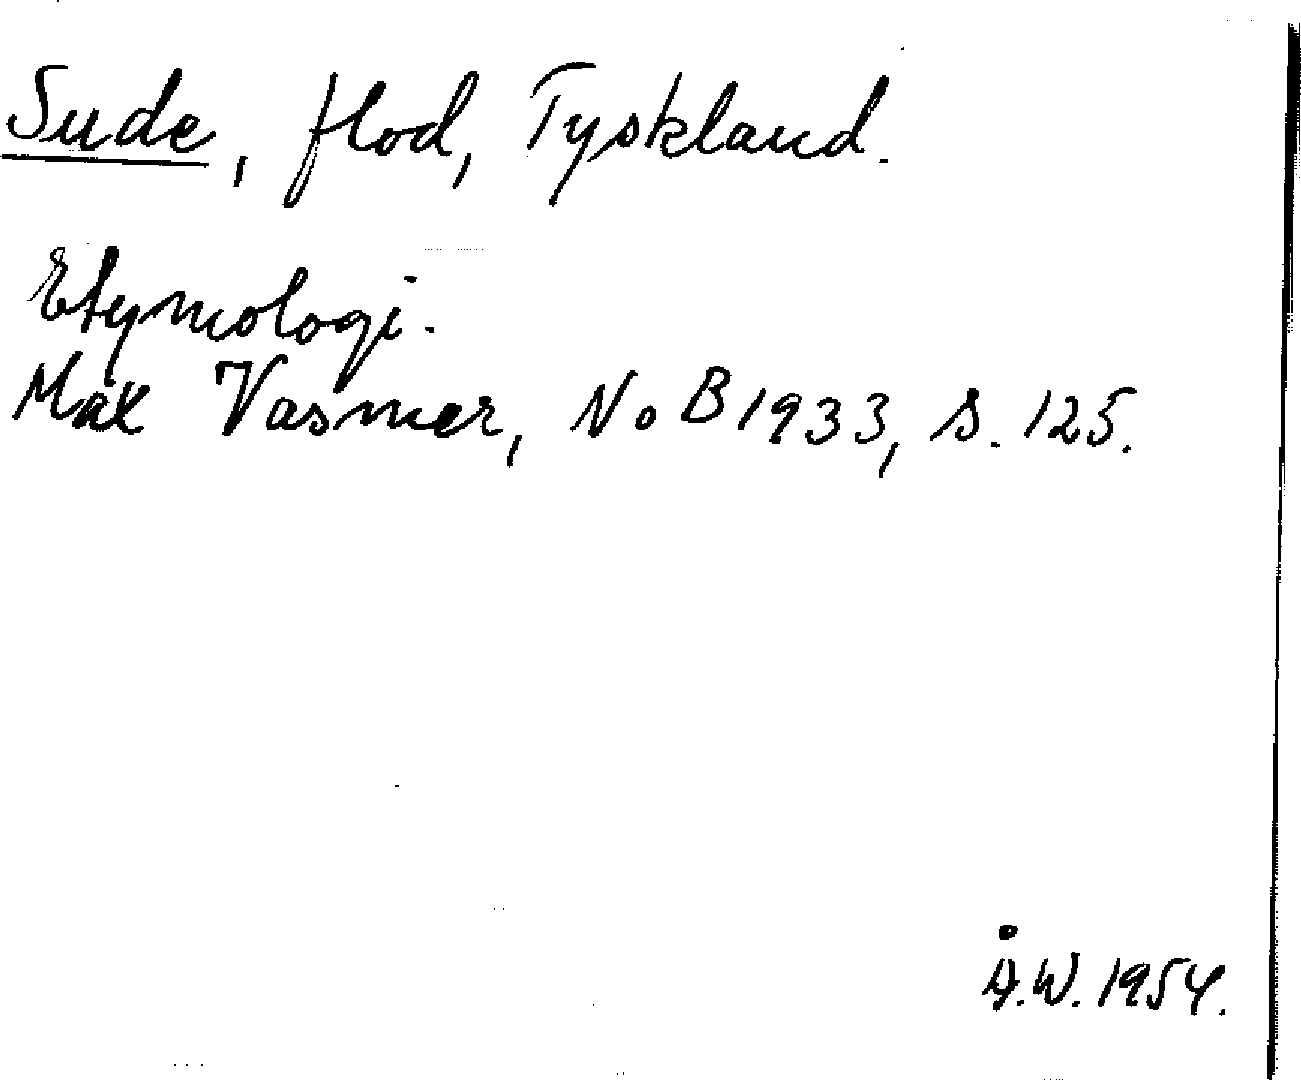 Sude, flod, Tyskland.
Etymologi.
Max Vasmer, NoB 1933, s. 125.
Å.W. 1954.